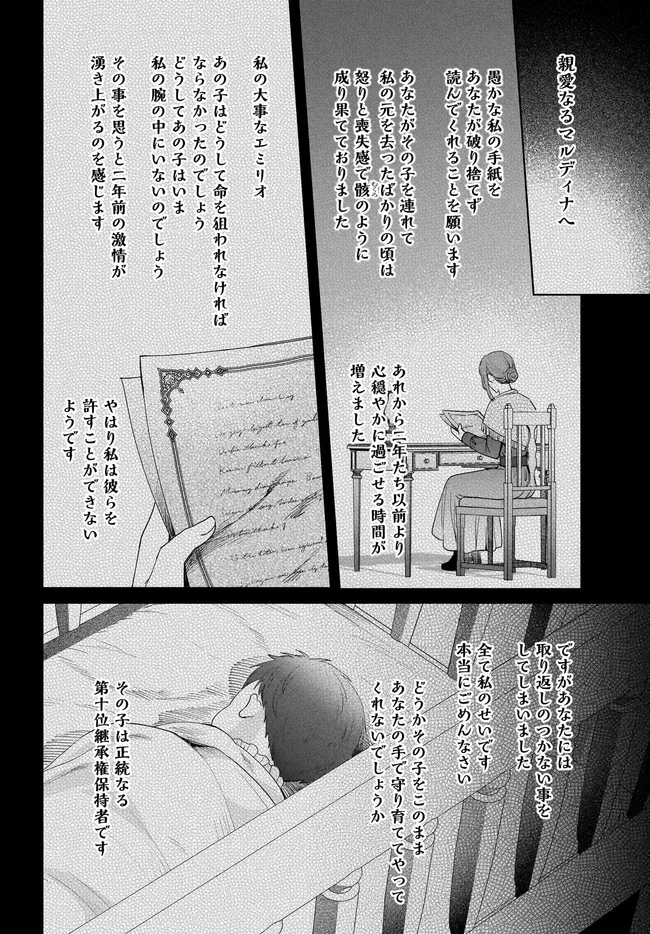 親愛なるマルディナへ
愚かな私の手紙を
あなたが破り捨てず
読んでくれることを願います
あなたがその子を連れて
私の元を去ったばかりの頃は
怒りと喪失感で骸のように
むくろ
成り果てておりました
あれから二年たち以前より
心穏やかに過ごせる時間が
増えました
私の大事なエミリオ
あの子はどうして命を狙われなければ
ならなかったのでしょう
どうしてあの子はいま
私の腕の中にいないのでしょう
その事を思うと二年前の激情が
湧き上がるのを感じます
やはり私は彼らを
許すことができない
ようです
ですがあなたには
取り返しのつかない事を
してしまいました
全て私のせいです
本当にごめんなさい
どうかその子をこのまま
あなたの手で守り育ててやって
くれないでしょうか
その子は正統なる
第十位継承権保持者です